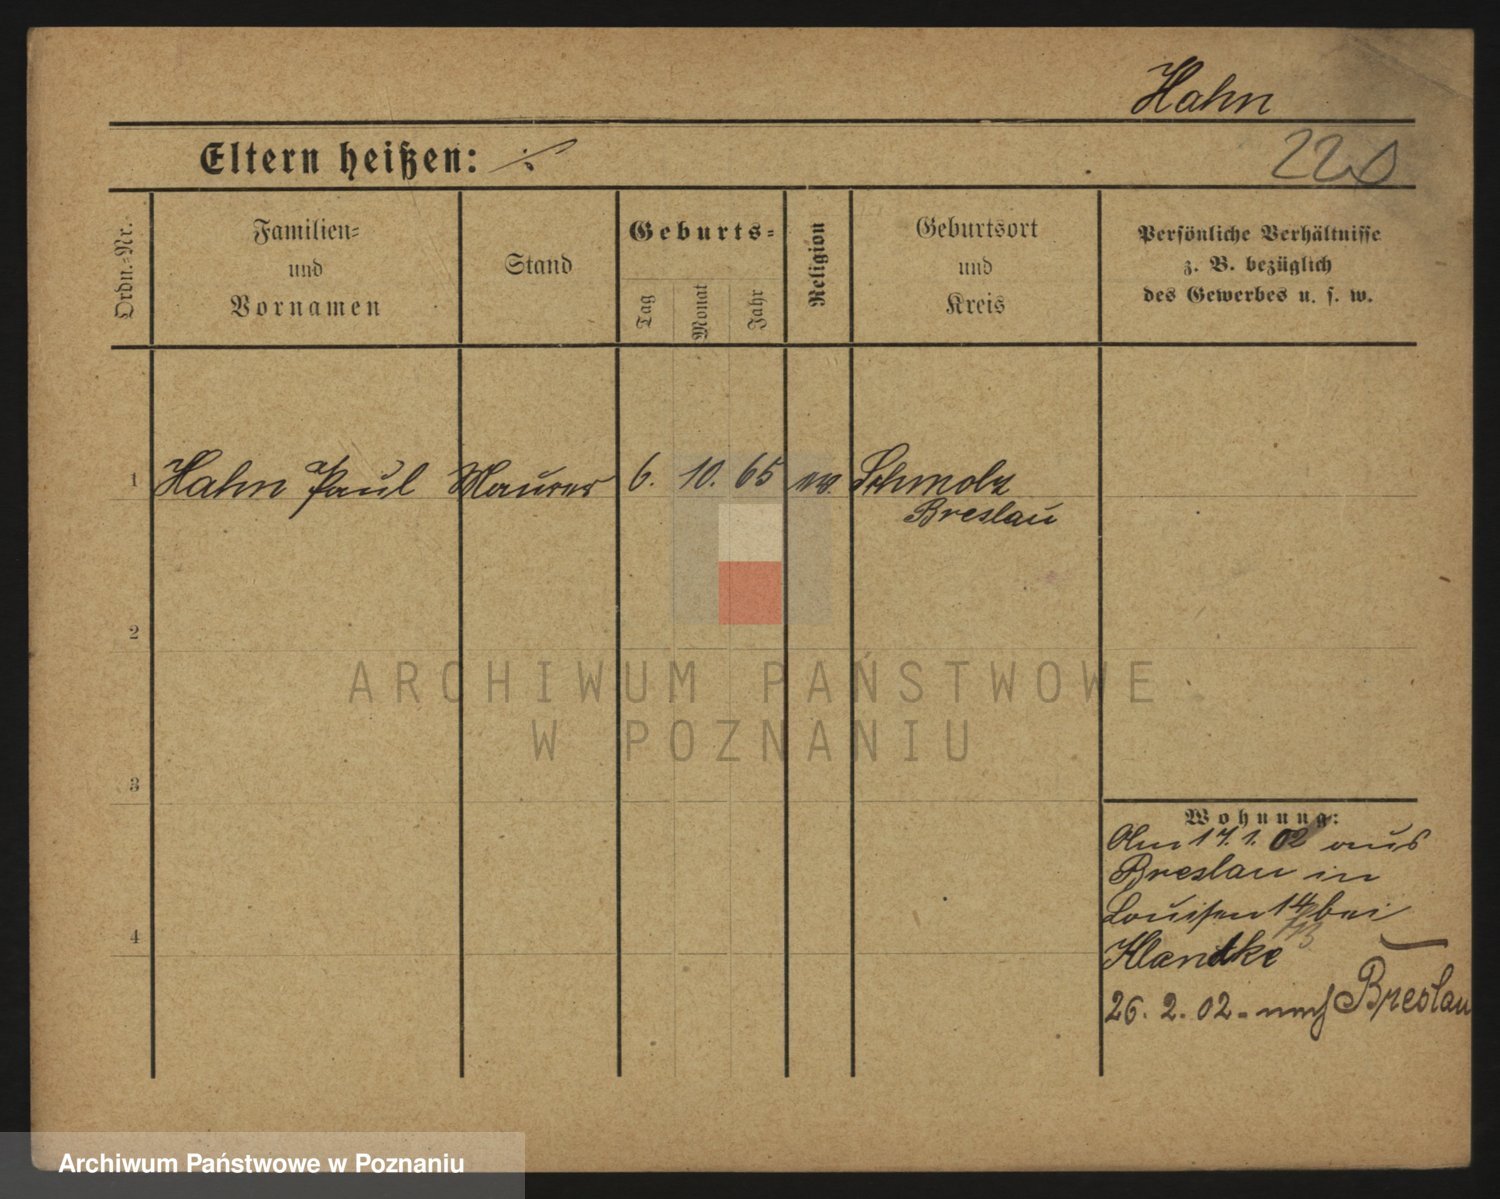 Hahn
Eltern heißen: ÷
220
Ordn.-Nr.
Familien-
und
Vornamen
Stand
Geburts-
Tag
Monat
Jahr
Religion
Geburtsort
und
Kreis
Persönliche Verhältnisse
z. B. bezüglich
des Gewerbes u. s. w.
1
Hahn Paul Maurer 6. 10. 65 Schmolz
Breslau
2
3
4
Wohnung:
Am 17. 1. 02 aus
Breslau in
Louisen 14 bei
Klantke
26. 2. 02 - nach Breslau
ARCHIWUM PAŃSTWOWE
W POZNANIU
Archiwum Państwowe w Poznaniu